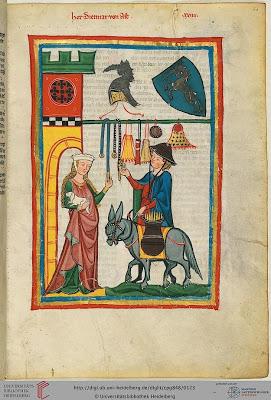 her Dietmar von Ast
xxiiij.
UNIVERSITÄTS-
BIBLIOTHEK
HEIDELBERG
http://digi.ub.uni-heidelberg.de/diglit/cpg848/0123
© Universitätsbibliothek Heidelberg